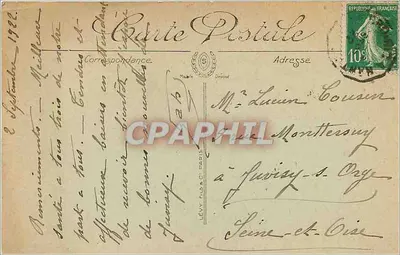 Carte Postale
Correspondance
Adresse
RÉPUBLIQUE FRANÇAISE
10c
2 Septembre 1922.
Remerciements - Meilleure
santé à tous trois de notre
part à tous. - Tendres et
affectueux baisers en attendant
de recevoir bientôt
de bonnes nouvelles de
Juvisy
Mr Lucien Cousin
Rue Monttessuy
à Juvisy-s-Orge
Seine-et-Oise
LÉVY FILS & Cie PARIS
CPAPHIL